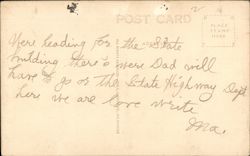 POST CARD
PLACE
STAMP
HERE
Here heading for the State
building there's were Dad will
have to go os the State Highway Dept
here we are love write
Ma.